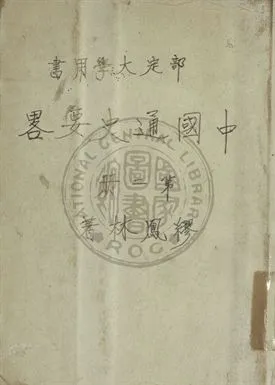 部定大學用書
中國通史要畧
第二冊
繆鳳林著
NATIONAL CENTRAL LIBRARY
ROC